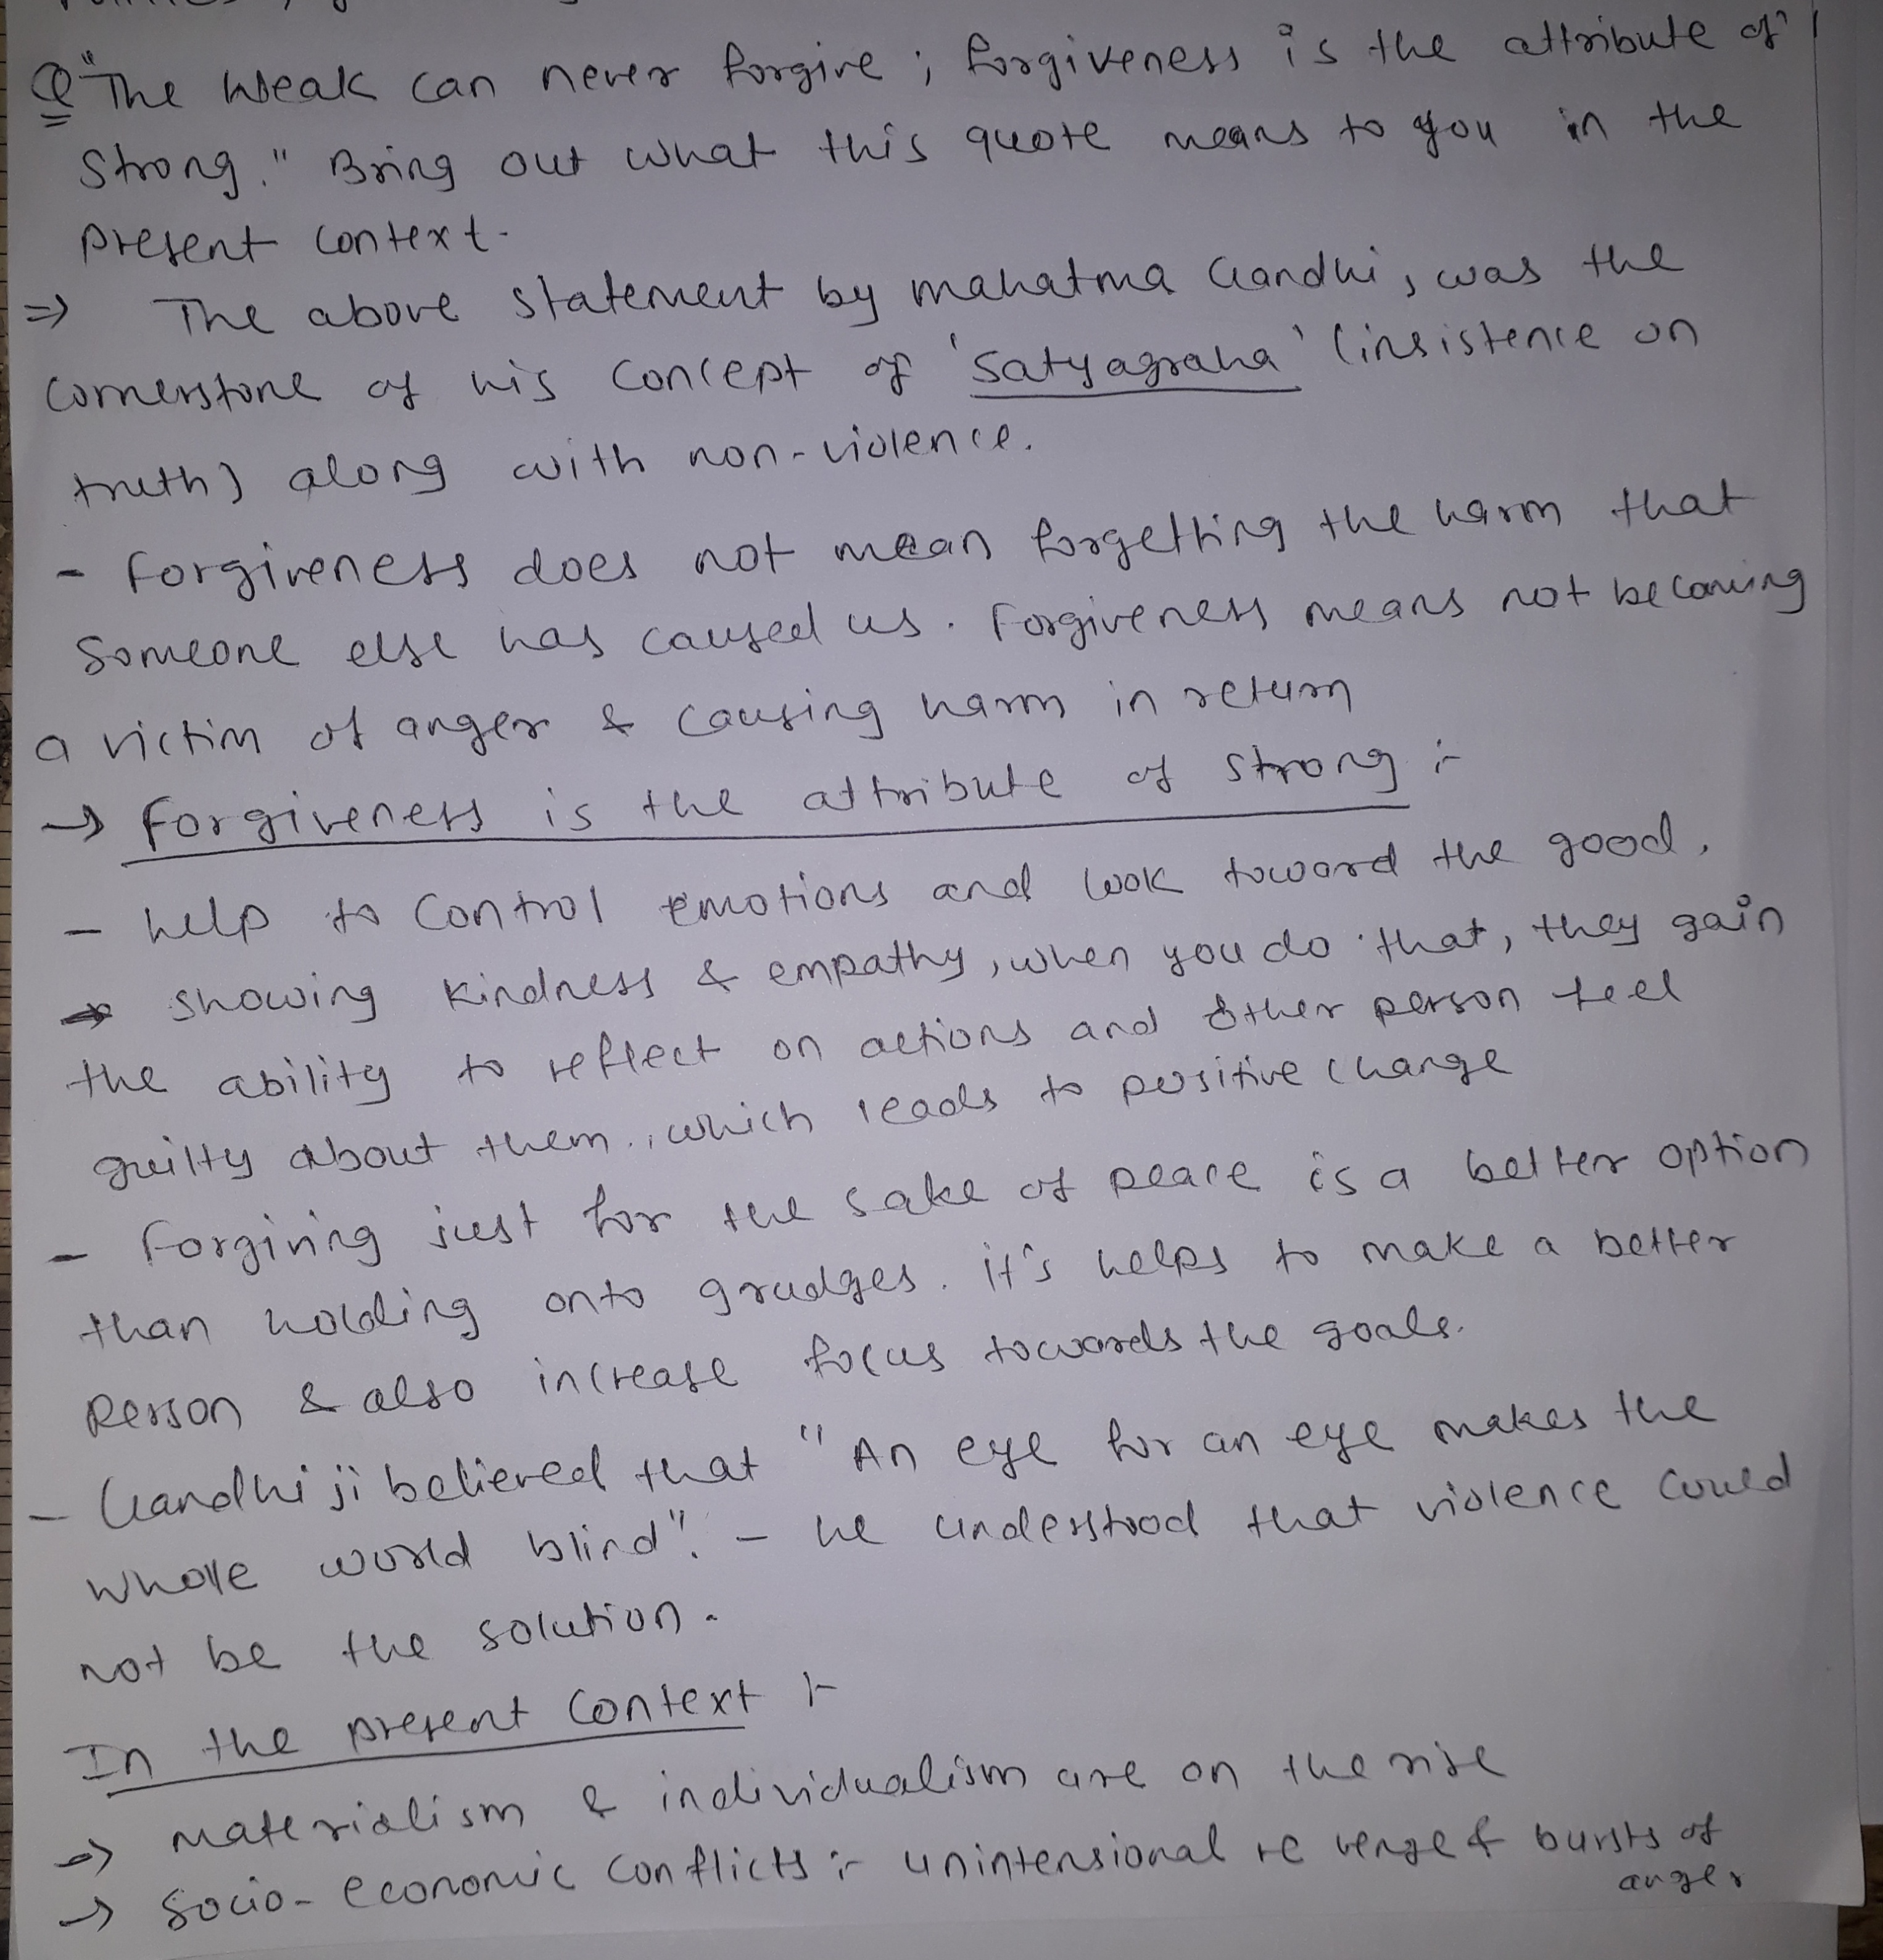 Q "The Weak can never forgive; forgiveness is the attribute of
Strong." Bring out what this quote means to you in the
present context.
⇒ The above statement by mahatma Gandhi, was the
cornerstone of his concept of 'Satyagraha' (insistence on
truth) along with non-violence.
- Forgiveness does not mean forgetting the harm that
someone else has caused us. Forgiveness means not becoming
a victim of anger & causing harm in return
→ Forgiveness is the attribute of strong :-
- help to control emotions and look toward the good.
→ showing kindness & empathy, when you do that, they gain
the ability to reflect on actions and other person feel
guilty about them., which leads to positive change
- Forgiving just for the sake of peace is a better option
than holding onto grudges. it's helps to make a better
person & also increase focus towards the goals.
- Gandhi ji believed that "An eye for an eye makes the
whole world blind". - he understood that violence could
not be the solution.
In the present context :-
→ materialism & individualism are on the rise
→ Socio-economic conflicts :- unintensional revenge & bursts of
anger